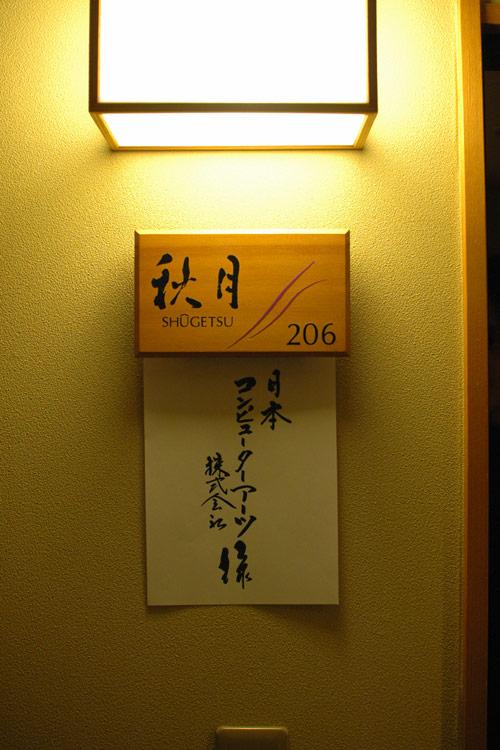 秋月
SHŪGETSU
206
日本
コンピューターアーツ
株式会社
様